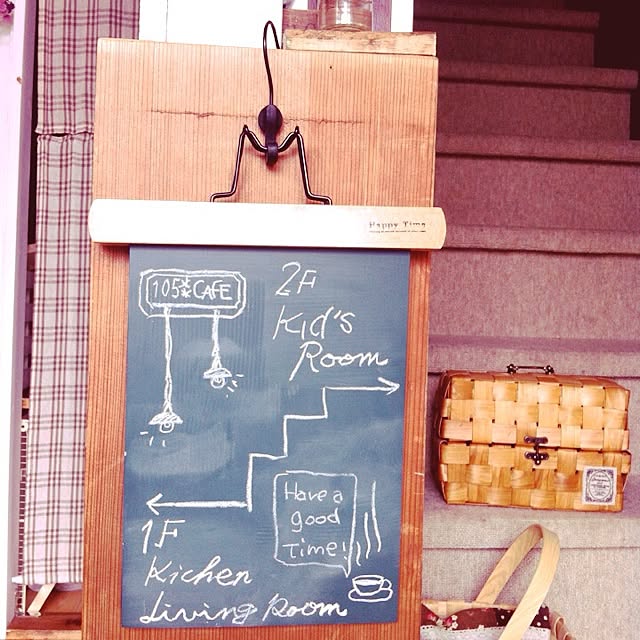 Happy Time
105 CAFE
2F
Kid's
Room
Have a
good
Time!
1F
Kichen
Living Room